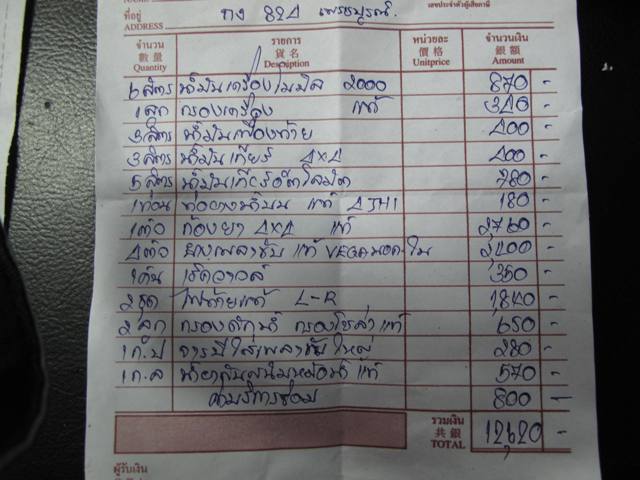 ที่อยู่ ADDRESS กง 824 เพชรบูรณ์.
เลขประจำตัวผู้เสียภาษี
จำนวน รายการ หน่วยละ จำนวนเงิน
數量 貨名 價格 銀額
Quantity Description Unitprice Amount
6 ลิตร น้ำมันเครื่อง 2000 870 -
1 ลูก กรองเครื่อง แท้ 340 -
3 ลิตร น้ำมันเฟืองท้าย 400 -
3 ลิตร น้ำมันเกียร์ 4x4 400 -
5 ลิตร น้ำมันเกียร์ออโตเมติก 780 -
1 ท่อน ท่อยางน้ำมัน แท้ 4JH1 180 -
1 ตัว 4x4 แท้ 2760 -
4 ตัว แท้ VEGA 2400 -
1 คัน เช็ควาวล์ 350 -
2 ชุด ไฟท้ายแท้ L-R 1840 -
2 ลูก กรองดักน้ำ กรองโซล่า แท้ 650 -
1 ก.ป จารบีใส่เพลาขับ ใหญ่ 280 -
1 ก.ล น้ำยากันสนิมหม้อน้ำ แท้ 570 -
ค่าบริการซ่อม 800 -
รวมเงิน
共銀
TOTAL 12,620 -
ผู้รับเงิน